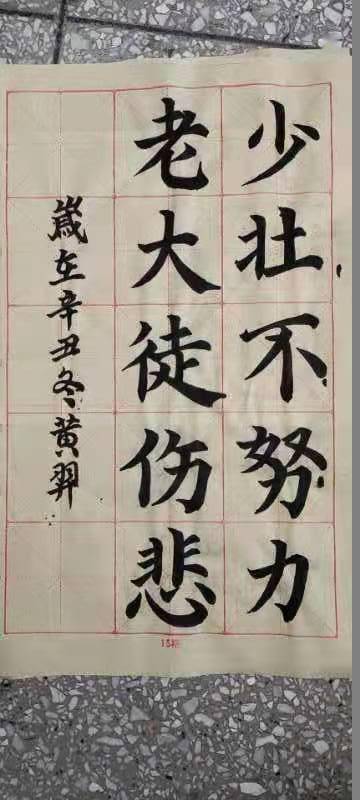 少壮不努力
老大徒伤悲
岁在辛丑冬黄羿
15格